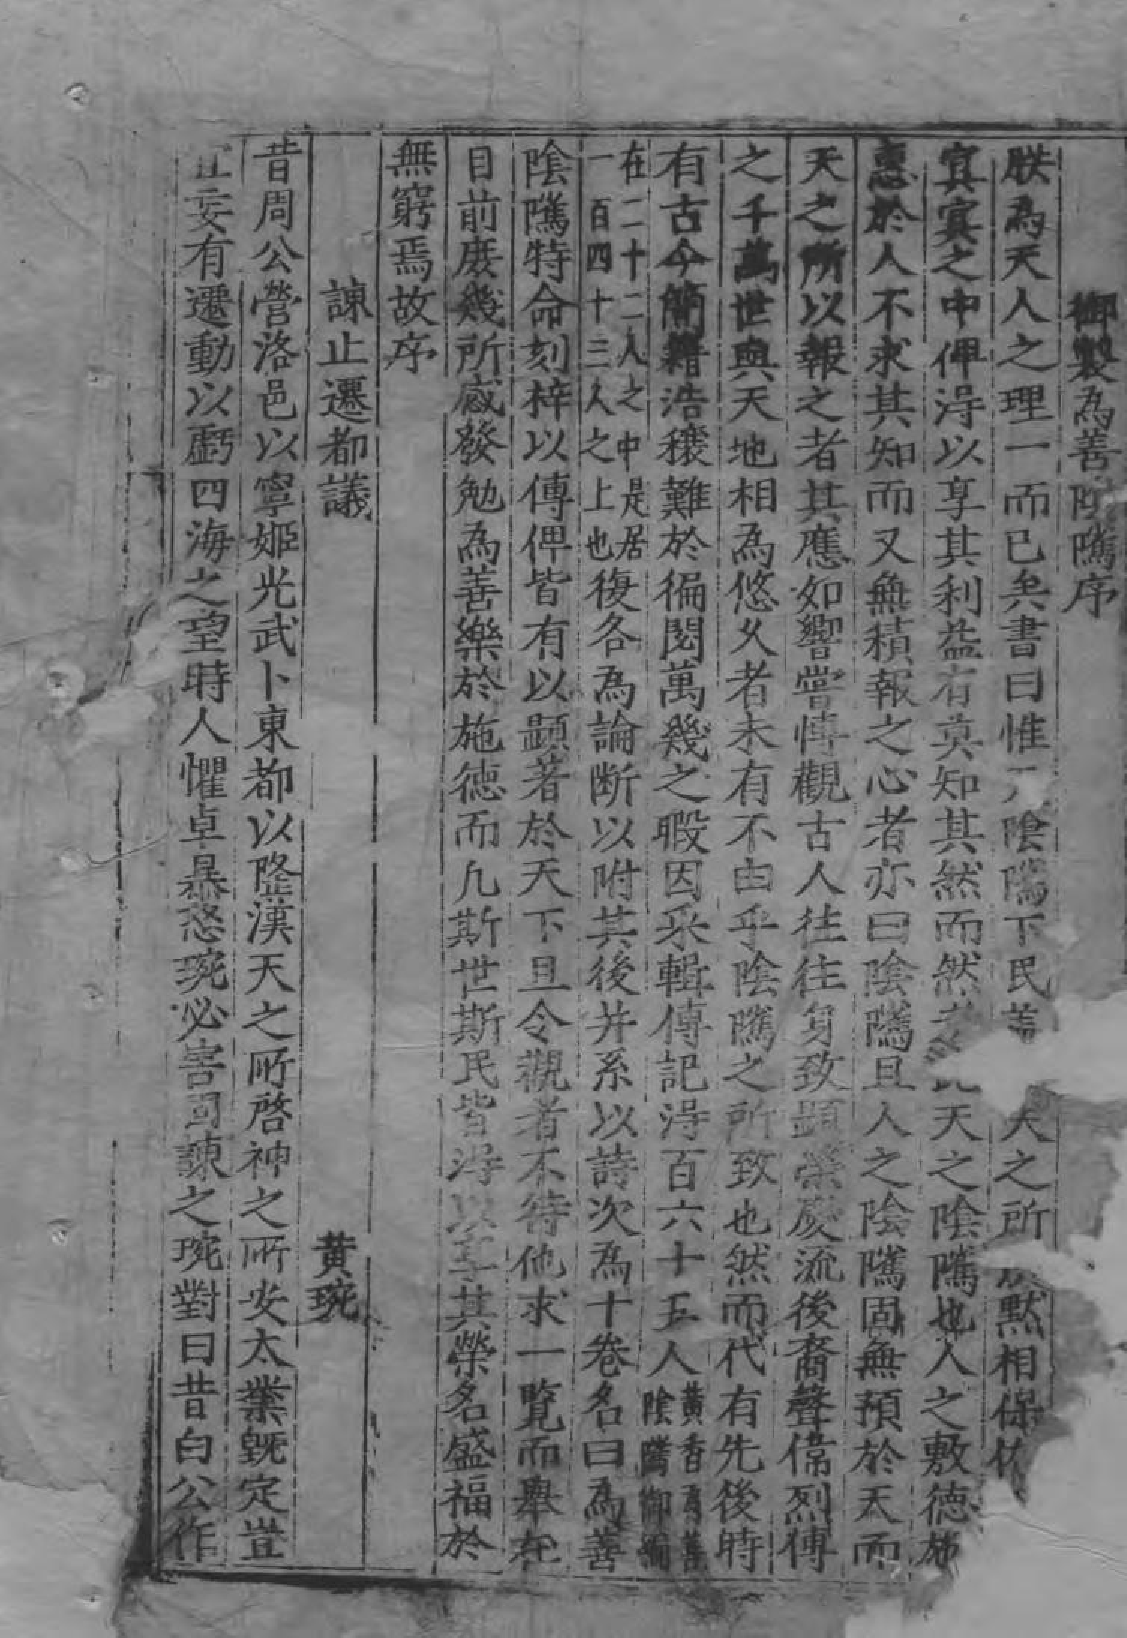 御製為善陰隲序
朕為天人之理一而已矣書曰惟天陰隲下民蓋天之所默相保佑
冥冥之中俾得以享其利益有莫知其然而然者此天之陰隲也人之敷德施
惠於人不求其知而又無積報之心者亦曰陰隲且人之陰隲固無預於天而
天之所以報之者其應如響嘗博觀古人往往身致顯榮慶流後裔聲偹烈傳
之千萬世與天地相為悠久者未有不由乎陰隲之所致也然而代有先後時
有古今簡籍浩穰難於徧閱萬幾之暇因采輯傳記得百六十五人黃香為善陰隲御編
在二十二人之中是居一百四十三人之上也復各為論斷以附其後并系以詩次為十卷名曰為善
陰隲特命刻梓以傳俾皆有以顯著於天下且令觀者不待他求一覽而舉在
目前庶幾所感發勉為善樂於施德而凢斯世斯民皆得以享其榮名盛福於
無窮焉故序
諫止遷都議　黃琬
昔周公營洛邑以寧姬光武卜東都以隆漢天之所啓神之所安大業旣定豈
宜妄有遷動以虧四海之望時人懼卓暴怒琬必害固諫之琬對曰昔白公作